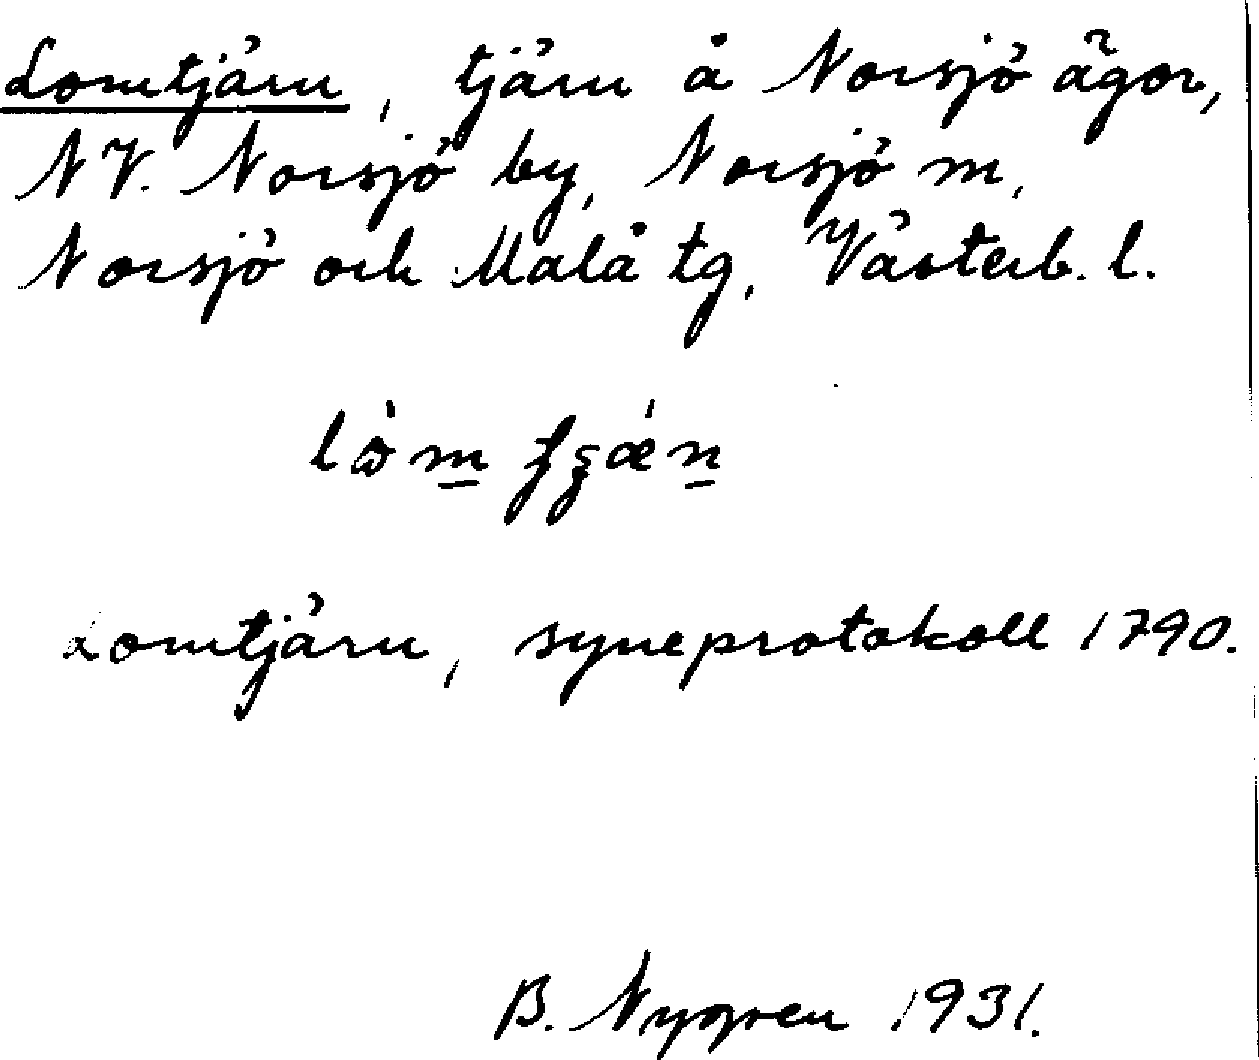 Lomtjärn, tjärn å Norsjö ägor,
NV. Norsjö by, Norsjö sn,
Norsjö och Malå tg, Västerb. l.
Lomtjärn, syneprotokoll 1790.
B. Nygren 1931.